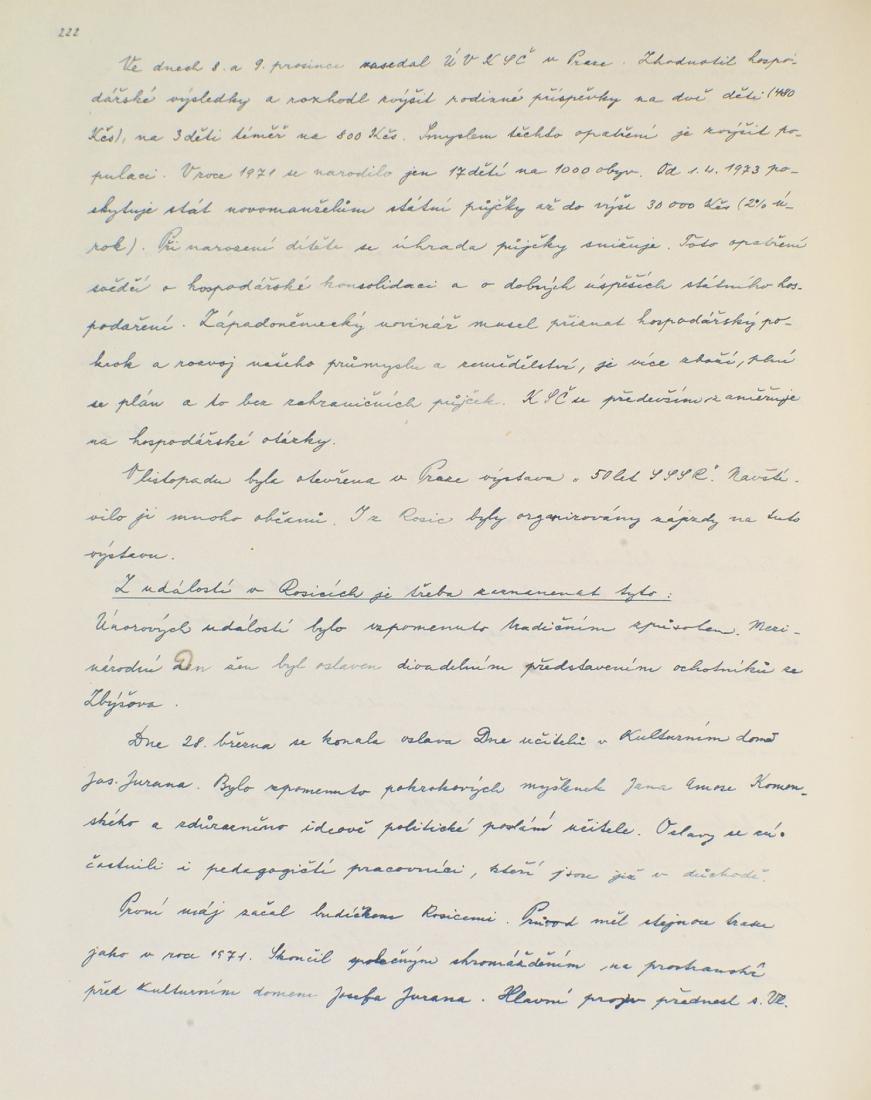 222
Ve dnech 8. a 9. prosince zasedal ÚV KSČ v Praze. Zhodnotil hospo-
dářské výsledky a rozhodl zvýšit rodinné příspěvky na dvě děti (480
Kčs), na 3 děti téměř na 800 Kčs. Smyslem těchto opatření je zvýšit po-
pulaci. V roce 1971 se narodilo jen 17 dětí na 1000 obyv. Od 1.4. 1973 po-
skytuje stát novomanželům státní půjčky až do výše 30 000 Kčs (2% ú-
rok). Při narození dítěte se úhrada půjčky snižuje. Toto opatření
svědčí o hospodářské konsolidaci a o dobrých úspěších státního hos-
podaření. Západoněmecký novinář musel přiznat hospodářský po-
krok a rozvoj našeho průmyslu a zemědělství, je více zboží, plní
se plán a to bez zahraničních půjček. KSČ se především zaměřuje
na hospodářské otázky.
V listopadu byla otevřena v Praze výstava „50 let SSSR". Navští-
vilo ji mnoho občanů. I z Rosic byly organizovány zájezdy na tuto
výstavu.
Z událostí v Rosicích je třeba zaznamenat tyto:
Únorových událostí bylo vzpomenuto tradičním způsobem. Mezi-
národní den žen byl oslaven divadelním představením ochotníků ze
Zbýšova.
Dne 28. března se konala oslava Dne učitelů v Kulturním domě
Jos. Jurana. Bylo vzpomenuto pokrokových myšlenek Jana Amose Komen-
ského a zdůrazněno ideově politické poslání učitele. Oslavy se zú-
častnili i pedagogičtí pracovníci, kteří jsou již v důchodě.
První máj začal budíčkem Rosicemi. Průvod měl stejnou trasu
jako v roce 1971. Skončil společným shromážděním na prostranství
před Kulturním domem Josefa Jurana. Hlavní projev přednesl s. Vl.